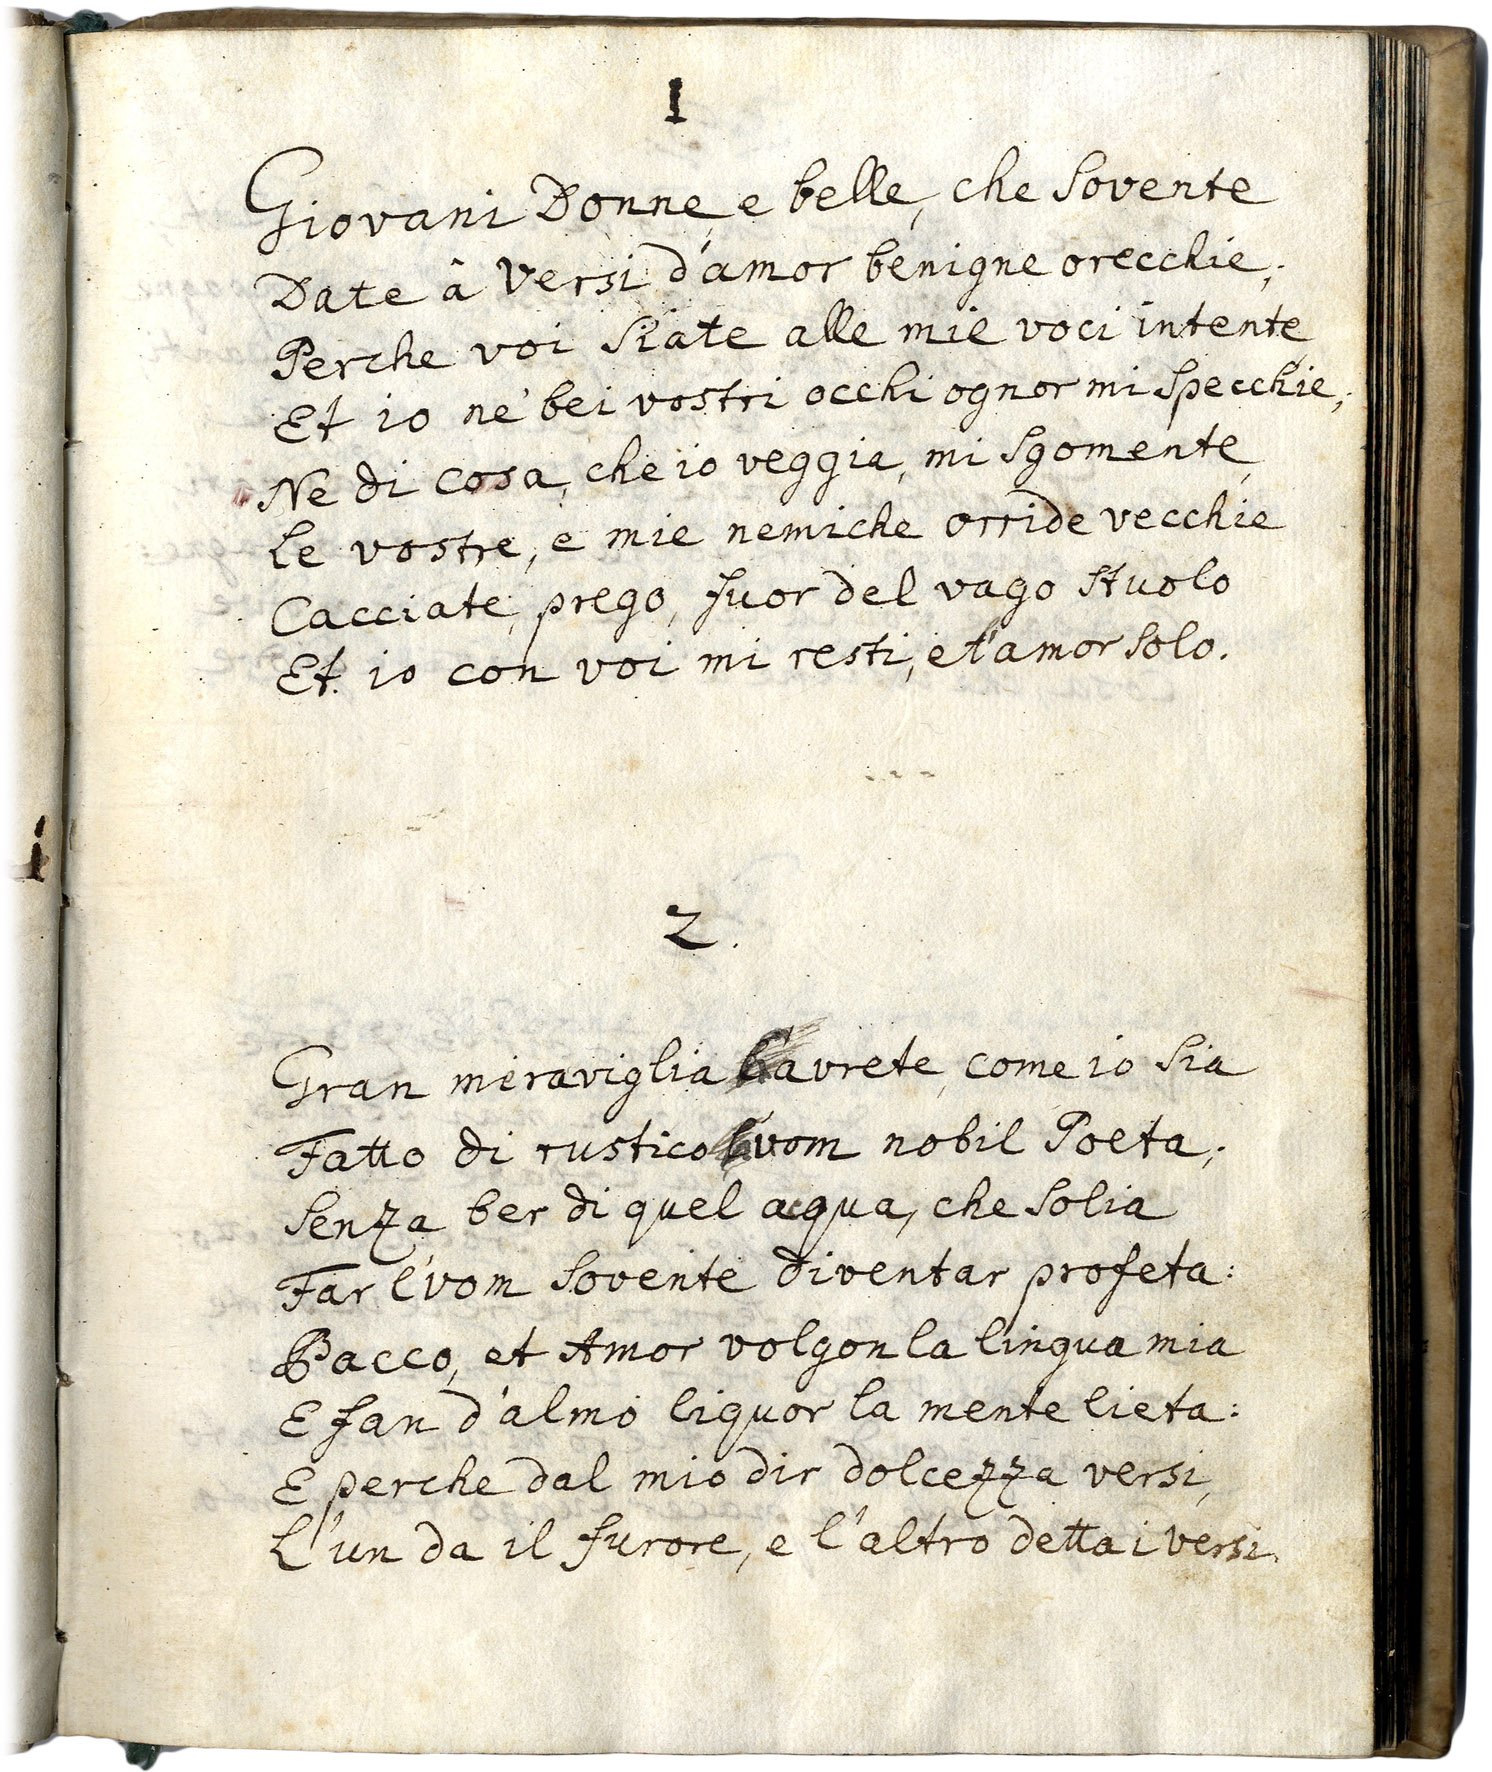 1
Giovani Donne, e belle, che sovente
Date â versi d'amor benigne orecchie;
Perche voi siate alle mie voci intente,
Et io ne' bei vostri occhi ognor mi specchie;
Ne di cosa, che io veggia, mi sgomente,
Le vostre, e mie nemiche orride vecchie
Cacciate, prego, fuor del vago stuolo
Et io con voi mi resti, e l'amor solo.
2.
Gran meraviglia havrete, come io sia
Fatto di rustico huom nobil Poeta;
Senza ber di quel acqua, che solia
Far l'vom sovente diventar profeta:
Bacco, et Amor volgon la lingua mia
E fan d'almo liquor la mente lieta:
E perche dal mio dir dolcezza versi,
L'un da il furore, e l'altro detta i versi.